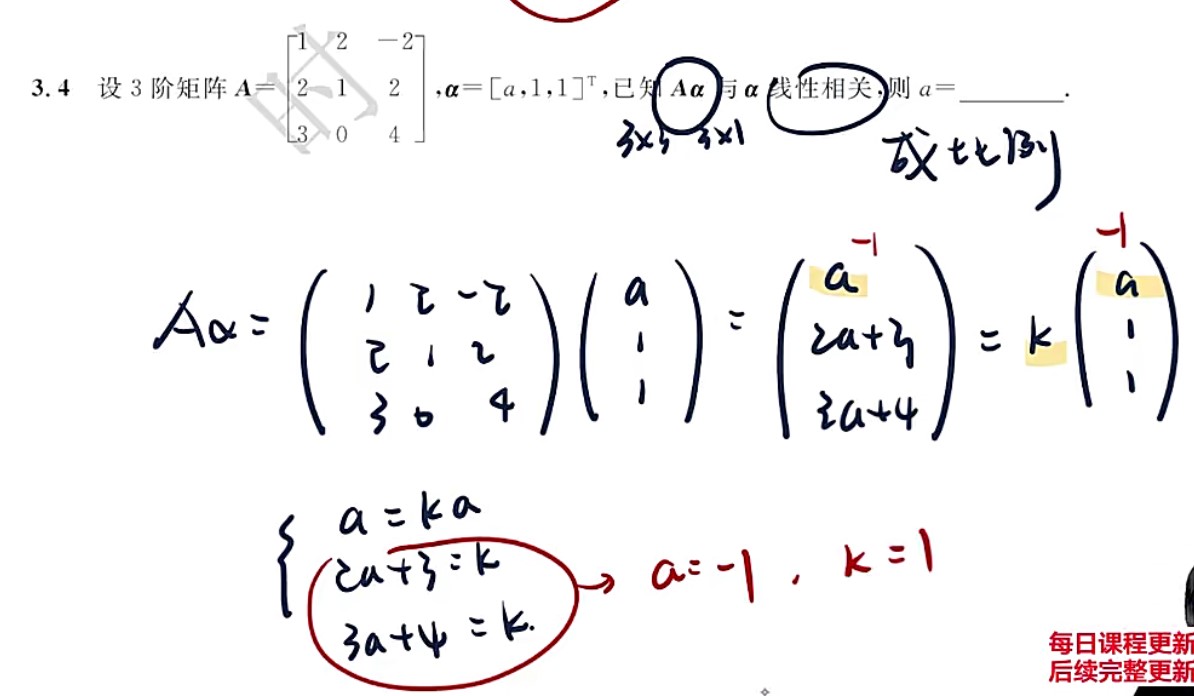 3.4 设 3 阶矩阵 A= [1 2 -2; 2 1 2; 3 0 4] ,α=[a,1,1]ᵀ,已知 Aα 与 α 线性相关,则 a=________.
3×3 3×1
成比例
Aα = (1 2 -2; 2 1 2; 3 0 4) (a; 1; 1) = (a; 2a+3; 3a+4) = k (a; 1; 1)
-1 -1
a = ka
2a+3 = k → a=-1 , k=1
3a+4 = k.
每日课程更新
后续完整更新